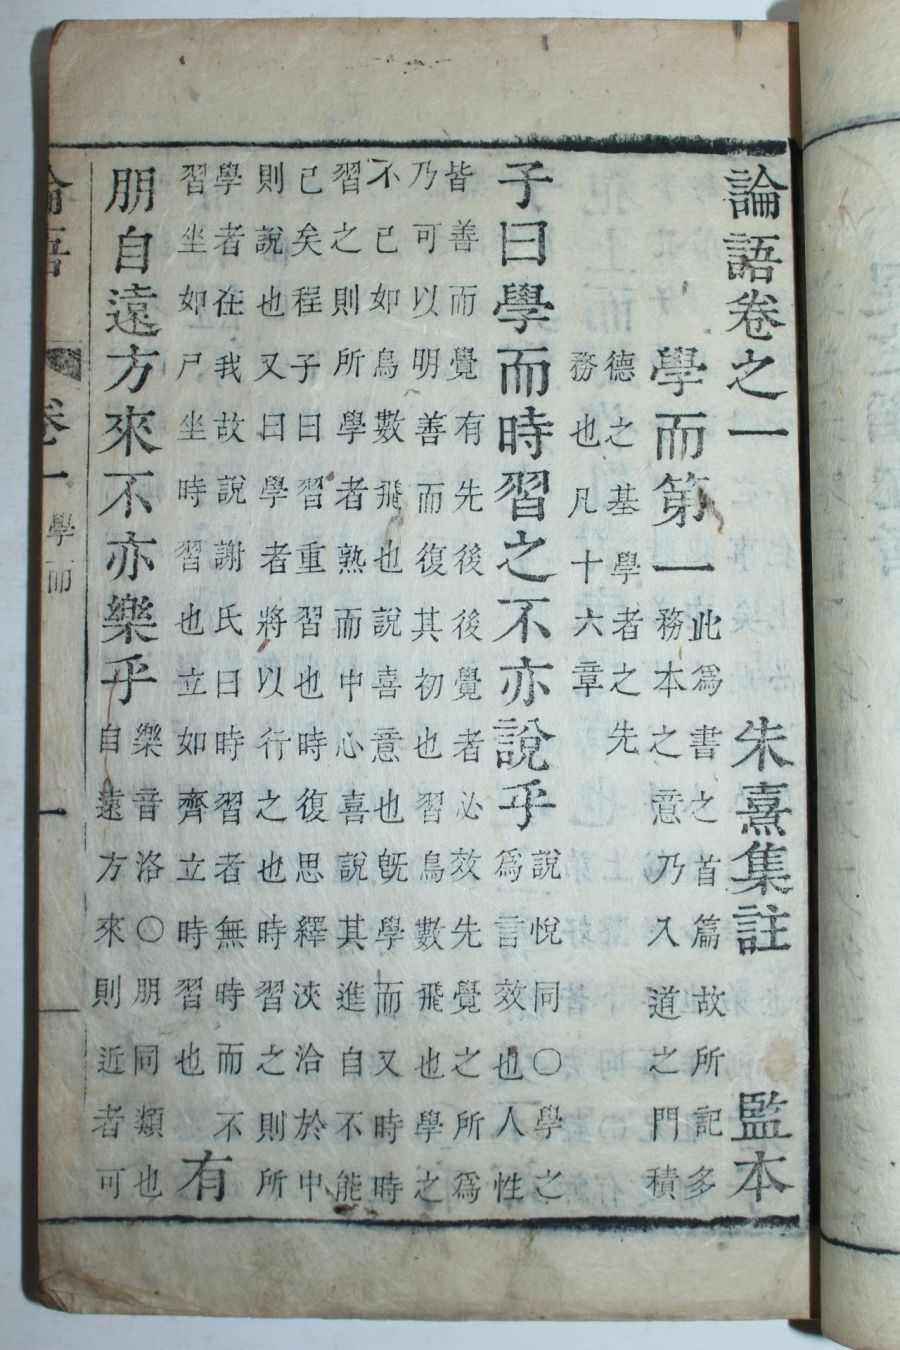 論語卷之一 朱熹集註 監本
學而第一 此爲書之首篇故所記多
務本之意乃入道之門積
德之基學者之先
務也凡十六章
子曰學而時習之不亦說乎 說悅同〇學之
爲言效也人性
皆善而覺有先後後覺者必效先覺之所爲
乃可以明善而復其初也習鳥數飛也學之
不已如鳥數飛也說喜意也旣學而又時時
習之則所學者熟而中心喜說其進自不能
已矣程子曰習重習也時復思繹浹洽於中
則說也又曰學者將以行之也時習之則所
學者在我故說謝氏曰時習者無時而不
習坐如尸坐時習也立如齊立時習也 有
朋自遠方來不亦樂乎 樂音洛〇朋同類也
自遠方來則近者可
論語 卷一 學而 一